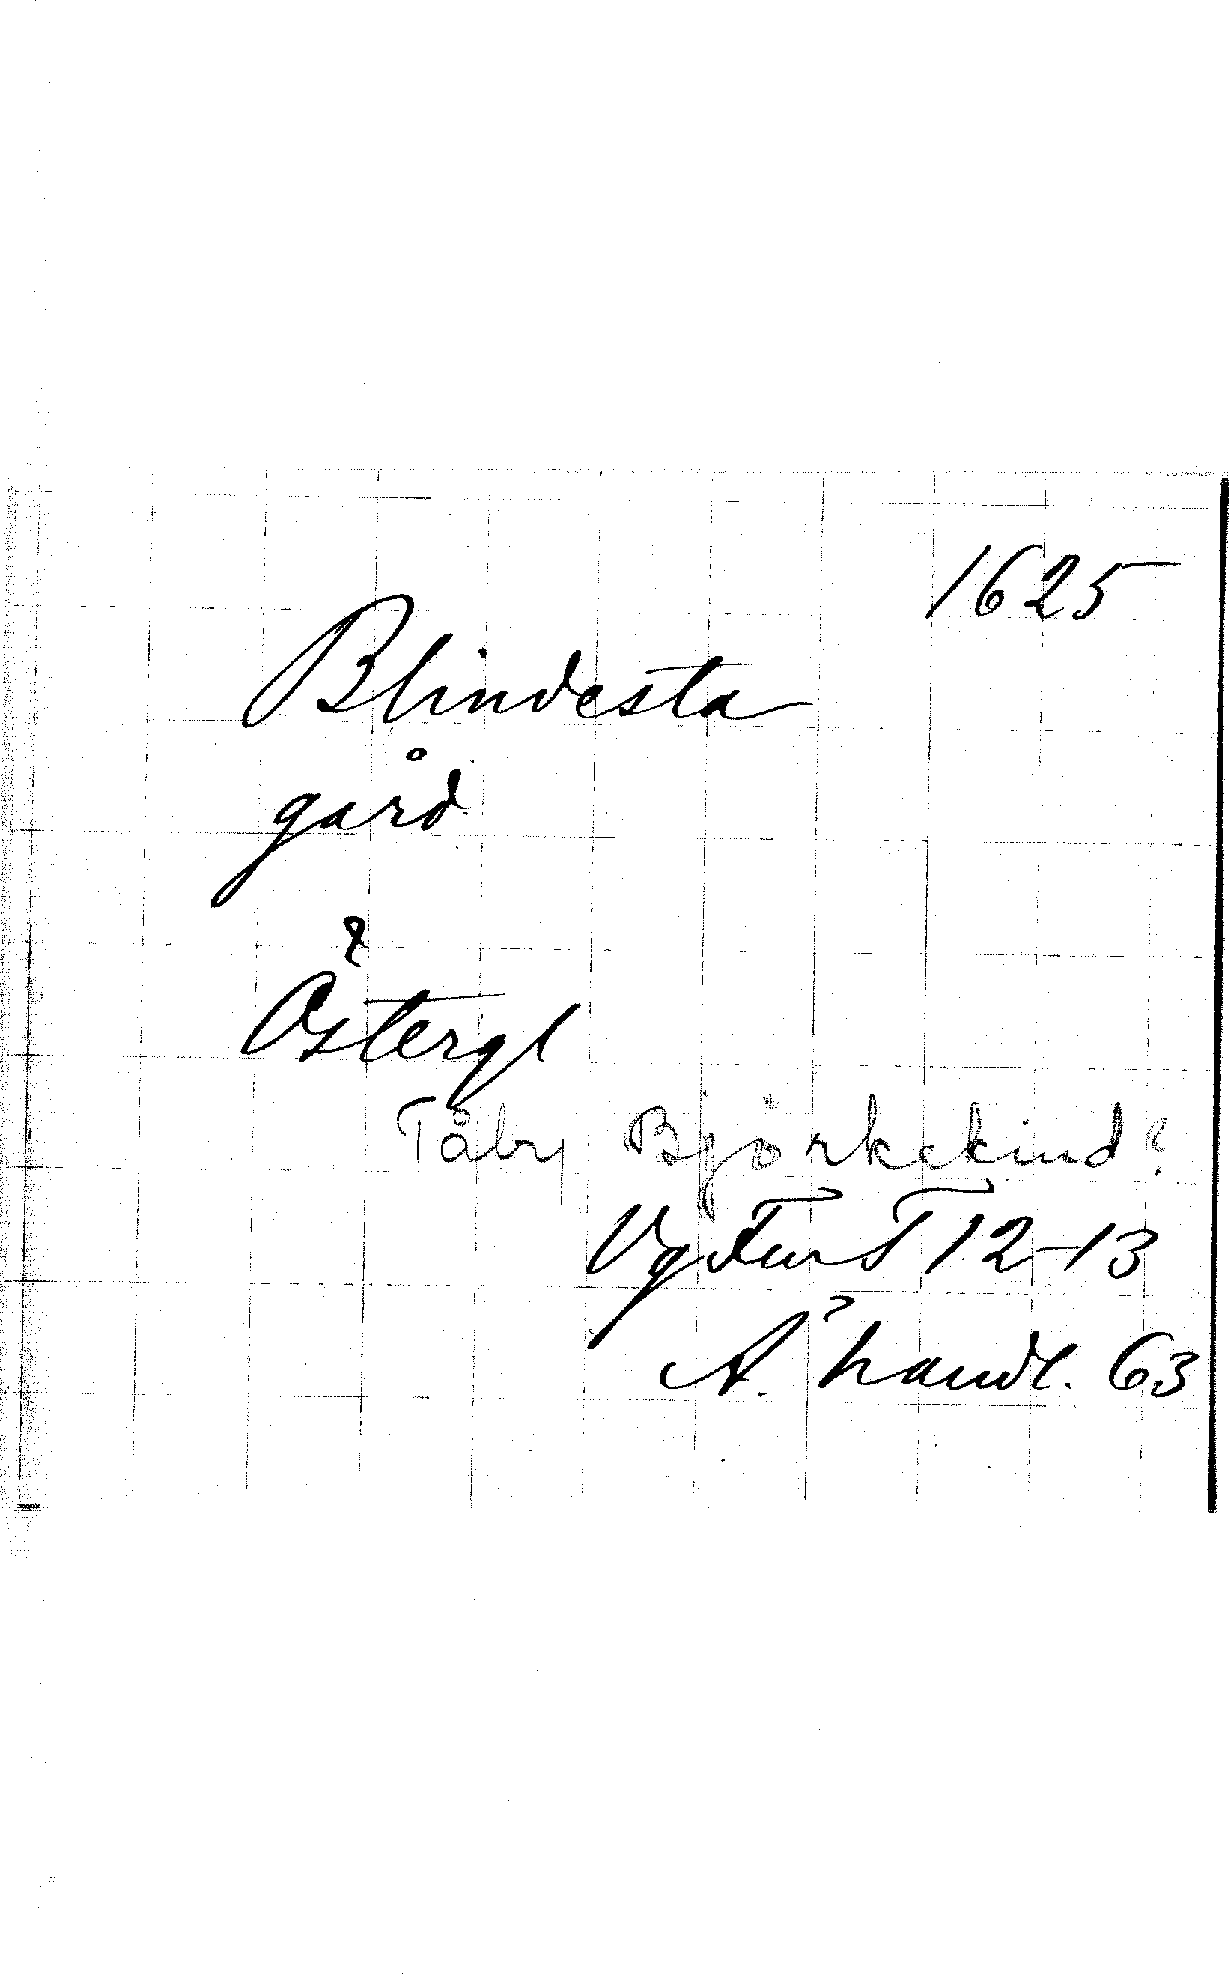 1625
Blindesta
gård
Östergl
Tåby Björkekind?
Vg Fur T 12-13
Å handl. 63